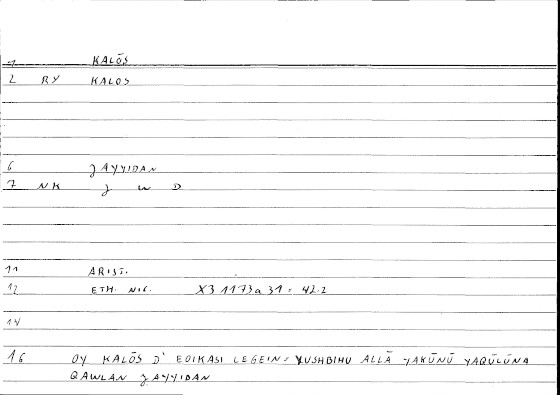 1 KALŌS
2 RY KALOS
6 JAYYIDAN
7 NK J W D
11 ARIST.
12 ETH. NIC. X3 1173a31 = 42.2
14
16 OY KALŌS D' EOIKASI LEGEIN = YUSHBIHU ALLĀ YAKŪNŪ YAQŪLŪNA
QAWLAN JAYYIDAN